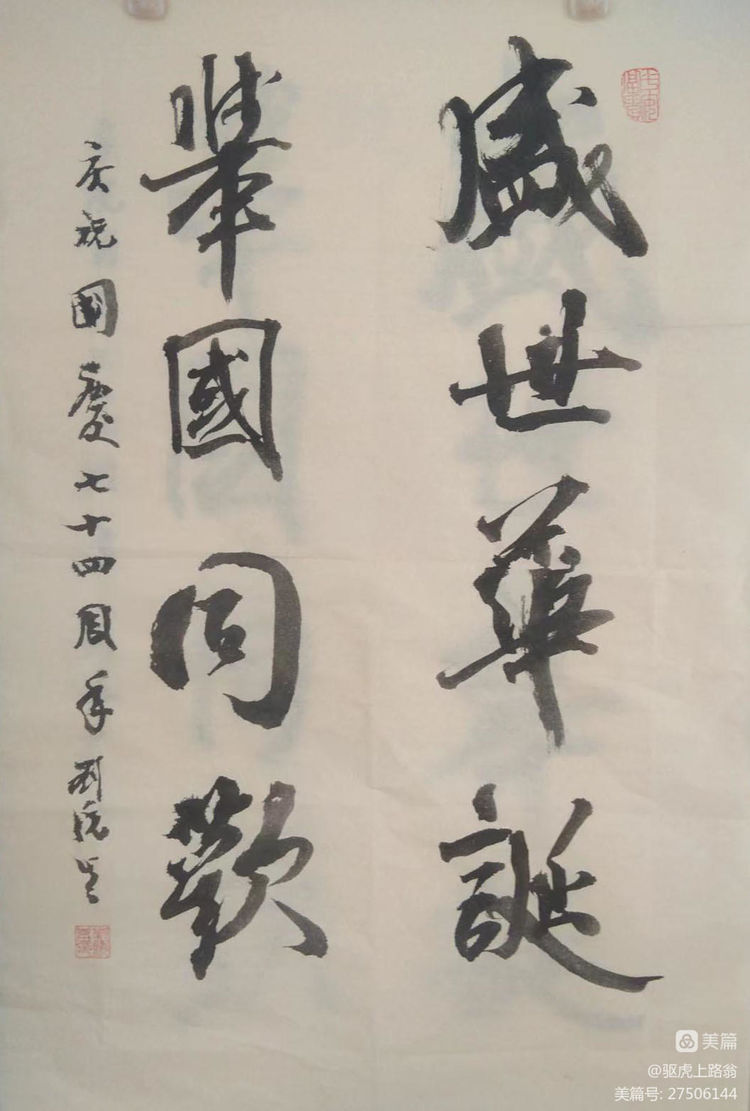 盛世華誕
舉國同歡
庆祝國慶七十四周年 刘
美篇
@驱虎上路翁
美篇号: 27506144